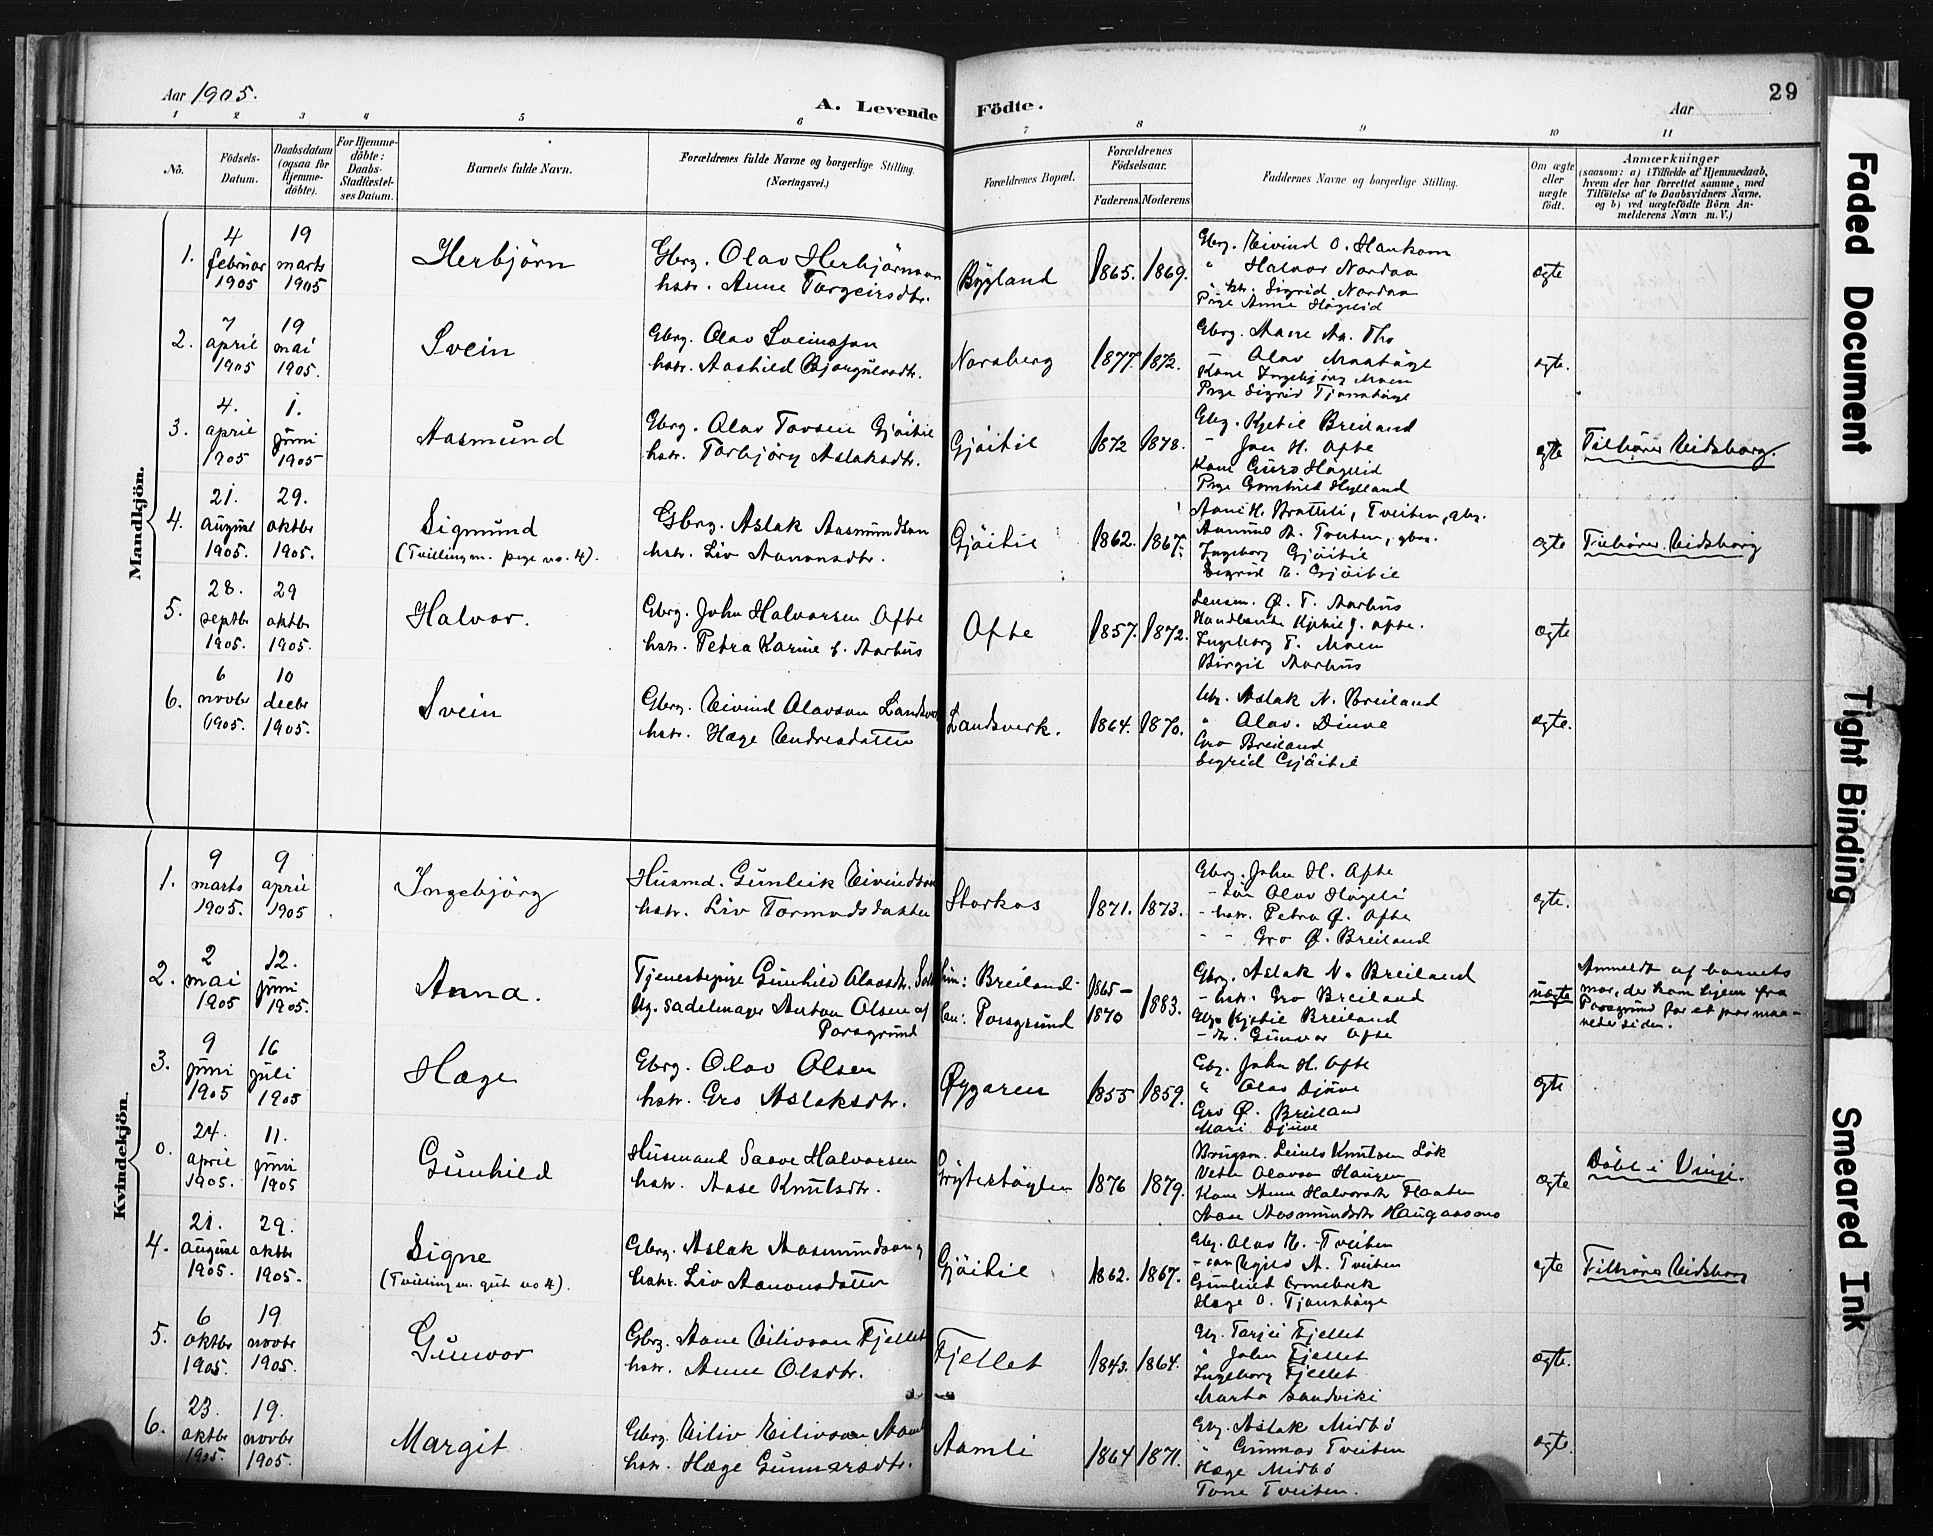 Aar 1905.
A. Levende Födte.
Aar
29
1 2 3 4 5 6 7 8 9 10 11
No.
Födsels-Datum.
Daabsdatum (ogsaa for Hjemme-döbte).
For Hjemme-döbte: Daabs-Stadfæstel-ses Datum.
Barnets fulde Navn.
Forældrenes fulde Navne og borgerlige Stilling.
(Næringsvei.)
Forældrenes Bopæl.
Forældrenes Födselsaar.
Faderens. Moderens.
Faddernes Navne og borgerlige Stilling.
Om ægte eller uægte födt.
Anmærkninger
(saasom: a) i Tilfælde af Hjemmedaab,
hvem der har forrettet samme, med
Tilföielse af to Daabsvidners Navne,
og b) ved uægtefödte Börn An-
melderens Navn m. V.)
Mandkjön.
1. 4 februar 1905 19 marts 1905 Herbjörn
Gbrg. Olav Herbjörnson
hstr. Anne Torgeirsdtr.
Bygland 1865. 1869.
Gbrg. Eivind O. Haukom
" Halvor Nordaa
" hstr. Sigrid Nordaa
Pige Anne Høgeid
ægte
2. 7 april 1905 19 mai 1905. Svein
Gbrg. Olav Sveinson
hstr. Aashild Bjørgulvsdtr.
Norsberg 1877. 1872.
Gbrg. Aane Aa. Tho
Kone Ingebjørg Moen
Pige Sigrid
ægte.
3. 4. april 1905 1. juni 1905 Aasmund
Gbrg. Olav Tovsen Gjöitil
hstr. Torbjörg Aslaksdtr.
Gjöitil 1872 1878.
Gbrg. Kjetil Breiland
- Jon H. Ofte
Kone Guro Høgeid
Pige Gunhild Hylland
ægte Tilhører Eidsborg.
4. 21. august 1905. 29. oktbr 1905. Sigmund
(Tvilling m. pige no. 4).
Gbrg. Aslak Aasmundson
hstr. Liv Aanonsdtr.
Gjöitil 1862. 1867.
Tveiten, gbrg.
Ingeborg Gjöitil
Gjöitil
ægte Tilhører Eidsborg
5. 28. septbr 1905. 29 oktbr 1905. Halvor.
Gbrg. John Halvorsen Ofte
hstr. Petra Karine f. Aarhus
Ofte 1857. 1872.
Lensm. Ø. T. Aarhus
Ingeborg T. Moen
Birgit Aarhus
ægte
6. 6 novbr 1905. 10 decbr 1905. Svein
Gbrg. Eivind Olavson
hstr. Hæge Endresdatter
Landsverk. 1864. 1870.
Gbr. Aslak N. Breiland
" Olav. Djuve
Gro Breiland
Sigrid Gjöitil
ægte.
Kvindekjön.
1. 9 marts 1905. 9 april 1905 Ingebjörg
Husmd. Gunleik Eivindson
hstr. Liv Tormodsdatter
Storkaas 1871. 1873.
Gbrg. John H. Ofte
- Olav
- hstr. Petra Ø. Ofte
- - Gro Ø. Breiland
ægte.
2. 2 mai 1905 12. juni 1905. Anna.
Tjenestepige Gunhild Olavsdtr.
Ug. sadelmager Anton Olsen af
Porsgrund
hun: Breiland-
han: Porsgrund
1865- 1870 1883.
Gbrg. Aslak N. Breiland
- hstr. Gro Breiland
Gbrg. Kjetil Breiland
Gunvor Ofte
uægte
Anmeldt af barnets
mor, der kom hjem fra
Porsgrund for et par maa-
neder siden.
3. 9 juni 1905 16 juli 1905 Hæge
Gbrg. Olav Olsen
hstr. Gro Aslaksdtr.
Øygaren 1855 1859.
Gbrg. John H. Ofte
" Olav Djuve
Gro Ø. Breiland
Mari Djuve
ægte
0. 24. april 1905. 11. juni 1905 Gunhild
Husmand Saave Halvorsen
hstr. Aase Knutsdtr.
1876 1879.
Leinls Knutson Løk
Vetle Olavson Haugen
Kone Anne Halvorsdtr Flaaten
Aase Aasmundsdtr
ægte Döbt i Vinje.
4. 21. august 1905. 29. oktbr 1905. Signe
(Tvilling m. gut no 4).
Gbrg. Aslak Aasmundson
hstr. Liv Aanonsdatter
Gjöitil 1862. 1867.
Gbrg. Olav Tveiten
A. Tveiten
Gunhild
Hæge O.
ægte Tilhører Eidsborg
5. 6 oktbr 1905. 19 novbr 1905. Gunvor
Gbrg. Aane Eilivson Fjellet
hstr. Anne Olsdtr.
Fjellet 1843. 1864.
Gbr. Tarjei Fjellet
" John Fjellet
Ingeborg Fjellet
Marta Sandviki
ægte.
6. 23. oktbr 1905. 19. novbr 1905. Margit
Gbrg. Eiliv Eilivson
hstr. Hæge Gunnarsdtr.
Aamli 1864 1871.
Gbrg. Aslak Midbö
" Gunnar Tveiten
Hæge Midbö
Tone Tveiten.
ægte.
Faded Document
Tight Binding
Smeared Ink